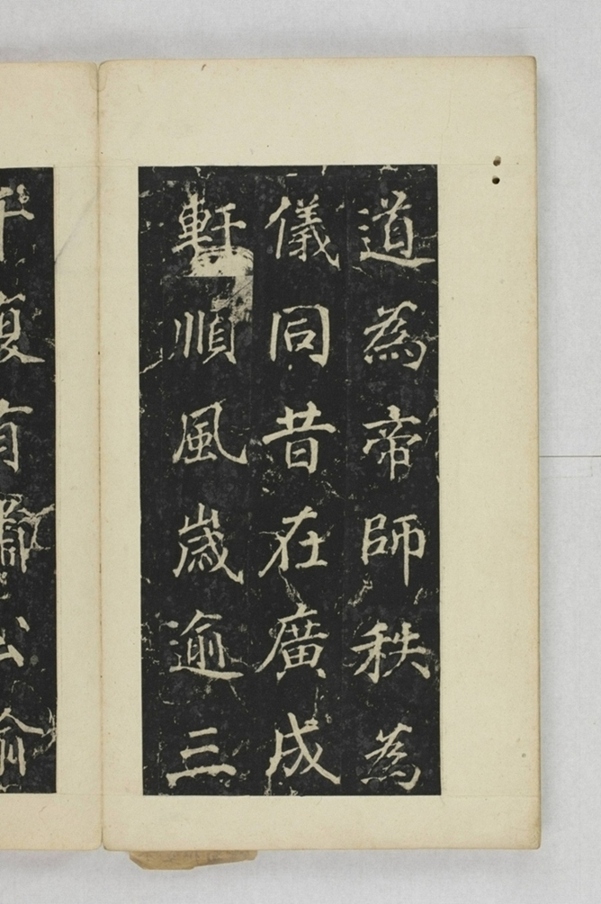 道為帝師秩為
儀同昔在廣成
軒順風歲逾三
千復有蕭公